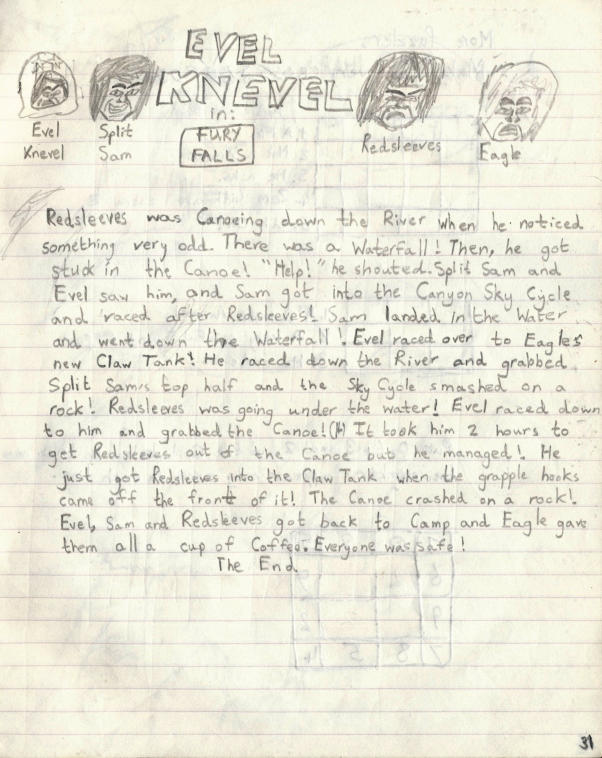 EVEL
KNEVEL
in:
FURY
FALLS
Evel
Knevel
Split
Sam
Redsleeves
Eagle
Redsleeves was Canoeing down the River when he noticed
something very odd. There was a Waterfall! Then, he got
stuck in the Canoe! "Help!" he shouted. Split Sam and
Evel saw him, and Sam got into the Canyon Sky Cycle
and raced after Redsleeves! Sam landed in the Water
and went down the Waterfall! Evel raced over to Eagles
new Claw Tank! He raced down the River and grabbed
Split Sam's top half and the Sky Cycle smashed on a
rock! Redsleeves was going under the water! Evel raced down
to him and grabbed the Canoe! It took him 2 hours to
get Redsleeves out of the Canoe but he managed! He
just got Redsleeves into the Claw Tank when the grapple hooks
came off the front of it! The Canoe crashed on a rock!
Evel, Sam and Redsleeves got back to Camp and Eagle gave
them all a cup of Coffee. Everyone was safe!
The End
31